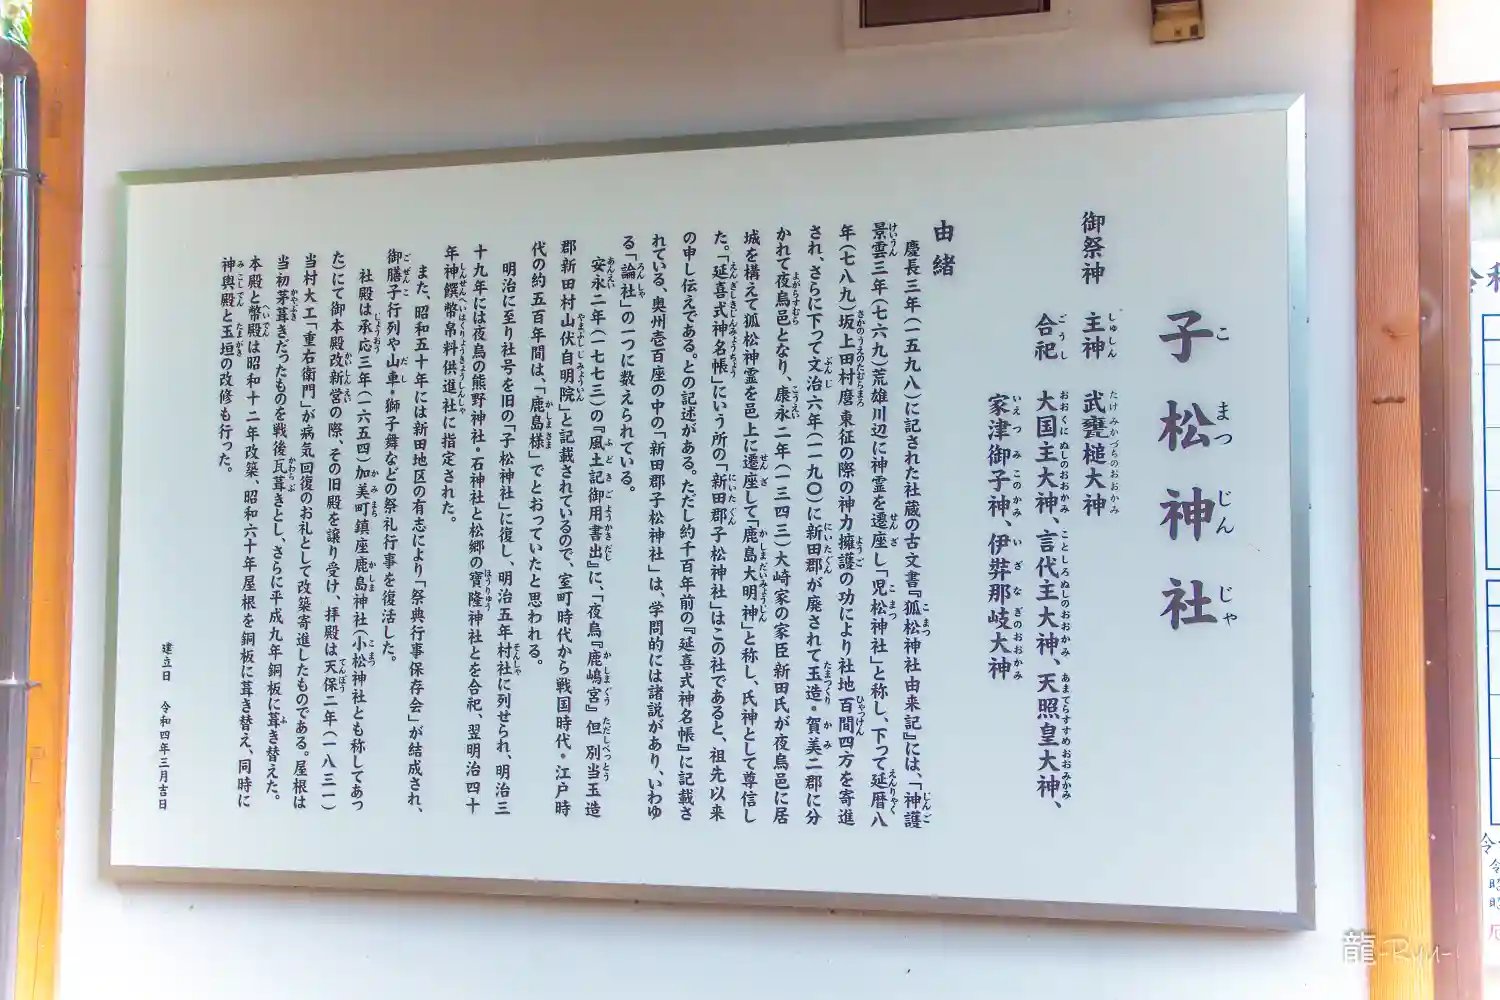 子松神社
こまつじんじゃ
御祭神 主神 武甕槌大神
しゅしん たけみかづちのおおかみ
合祀 大国主大神、言代主大神、天照皇大神、
ごうし おおくにぬしのおおかみ ことしろぬしのおおかみ あまてらすすめおおみかみ
家津御子神、伊弉那岐大神
いえつみこのかみ いざなぎのおおかみ
由緒
慶長三年(一五九八)に記された社蔵の古文書『狐松神社由来記』には、「神護
景雲三年(七六九)荒雄川辺に神霊を遷座し「児松神社」と称し、下って延暦八
年(七八九)坂上田村麿東征の際の神力擁護の功により社地百間四方を寄進
され、さらに下って文治六年(一一九〇)に新田郡が廃されて玉造・賀美二郡に分
かれて夜烏邑となり、康永二年(一三四三)大崎家の家臣新田氏が夜烏邑に居
城を構えて狐松神霊を邑上に遷座して「鹿島大明神」と称し、氏神として尊信し
た。「延喜式神名帳」にいう所の「新田郡子松神社」はこの社であると、祖先以来
の申し伝えである。との記述がある。ただし約千百年前の『延喜式神名帳』に記載さ
れている、奥州壱百座の中の「新田郡子松神社」は、学問的には諸説があり、いわゆ
る「論社」の一つに数えられている。
安永二年(一七七三)の『風土記御用書出』に、「夜烏『鹿嶋宮』但別当玉造
郡新田村山伏自明院」と記載されているので、室町時代から戦国時代・江戸時
代の約五百年間は、「鹿島様」でとおっていたと思われる。
明治に至り社号を旧の「子松神社」に復し、明治五年村社に列せられ、明治三
十九年には夜烏の熊野神社・石神社と松郷の寶隆神社とを合祀、翌明治四十
年神饌幣帛料供進社に指定された。
また、昭和五十年には新田地区の有志により「祭典行事保存会」が結成され、
御膳子行列や山車・獅子舞などの祭礼行事を復活した。
社殿は承応三年(一六五四)加美町鎮座鹿島神社(小松神社とも称してあっ
た)にて御本殿改新営の際、その旧殿を譲り受け、拝殿は天保二年(一八三一)
当村大工「重右衛門」が病気回復のお礼として改築寄進したものである。屋根は
当初茅葺きだったものを戦後瓦葺きとし、さらに平成九年銅板に葺き替えた。
本殿と幣殿は昭和十二年改築、昭和六十年屋根を銅板に葺き替え、同時に
神輿殿と玉垣の改修も行った。
建立日 令和四年三月吉日
龍-Ryu-